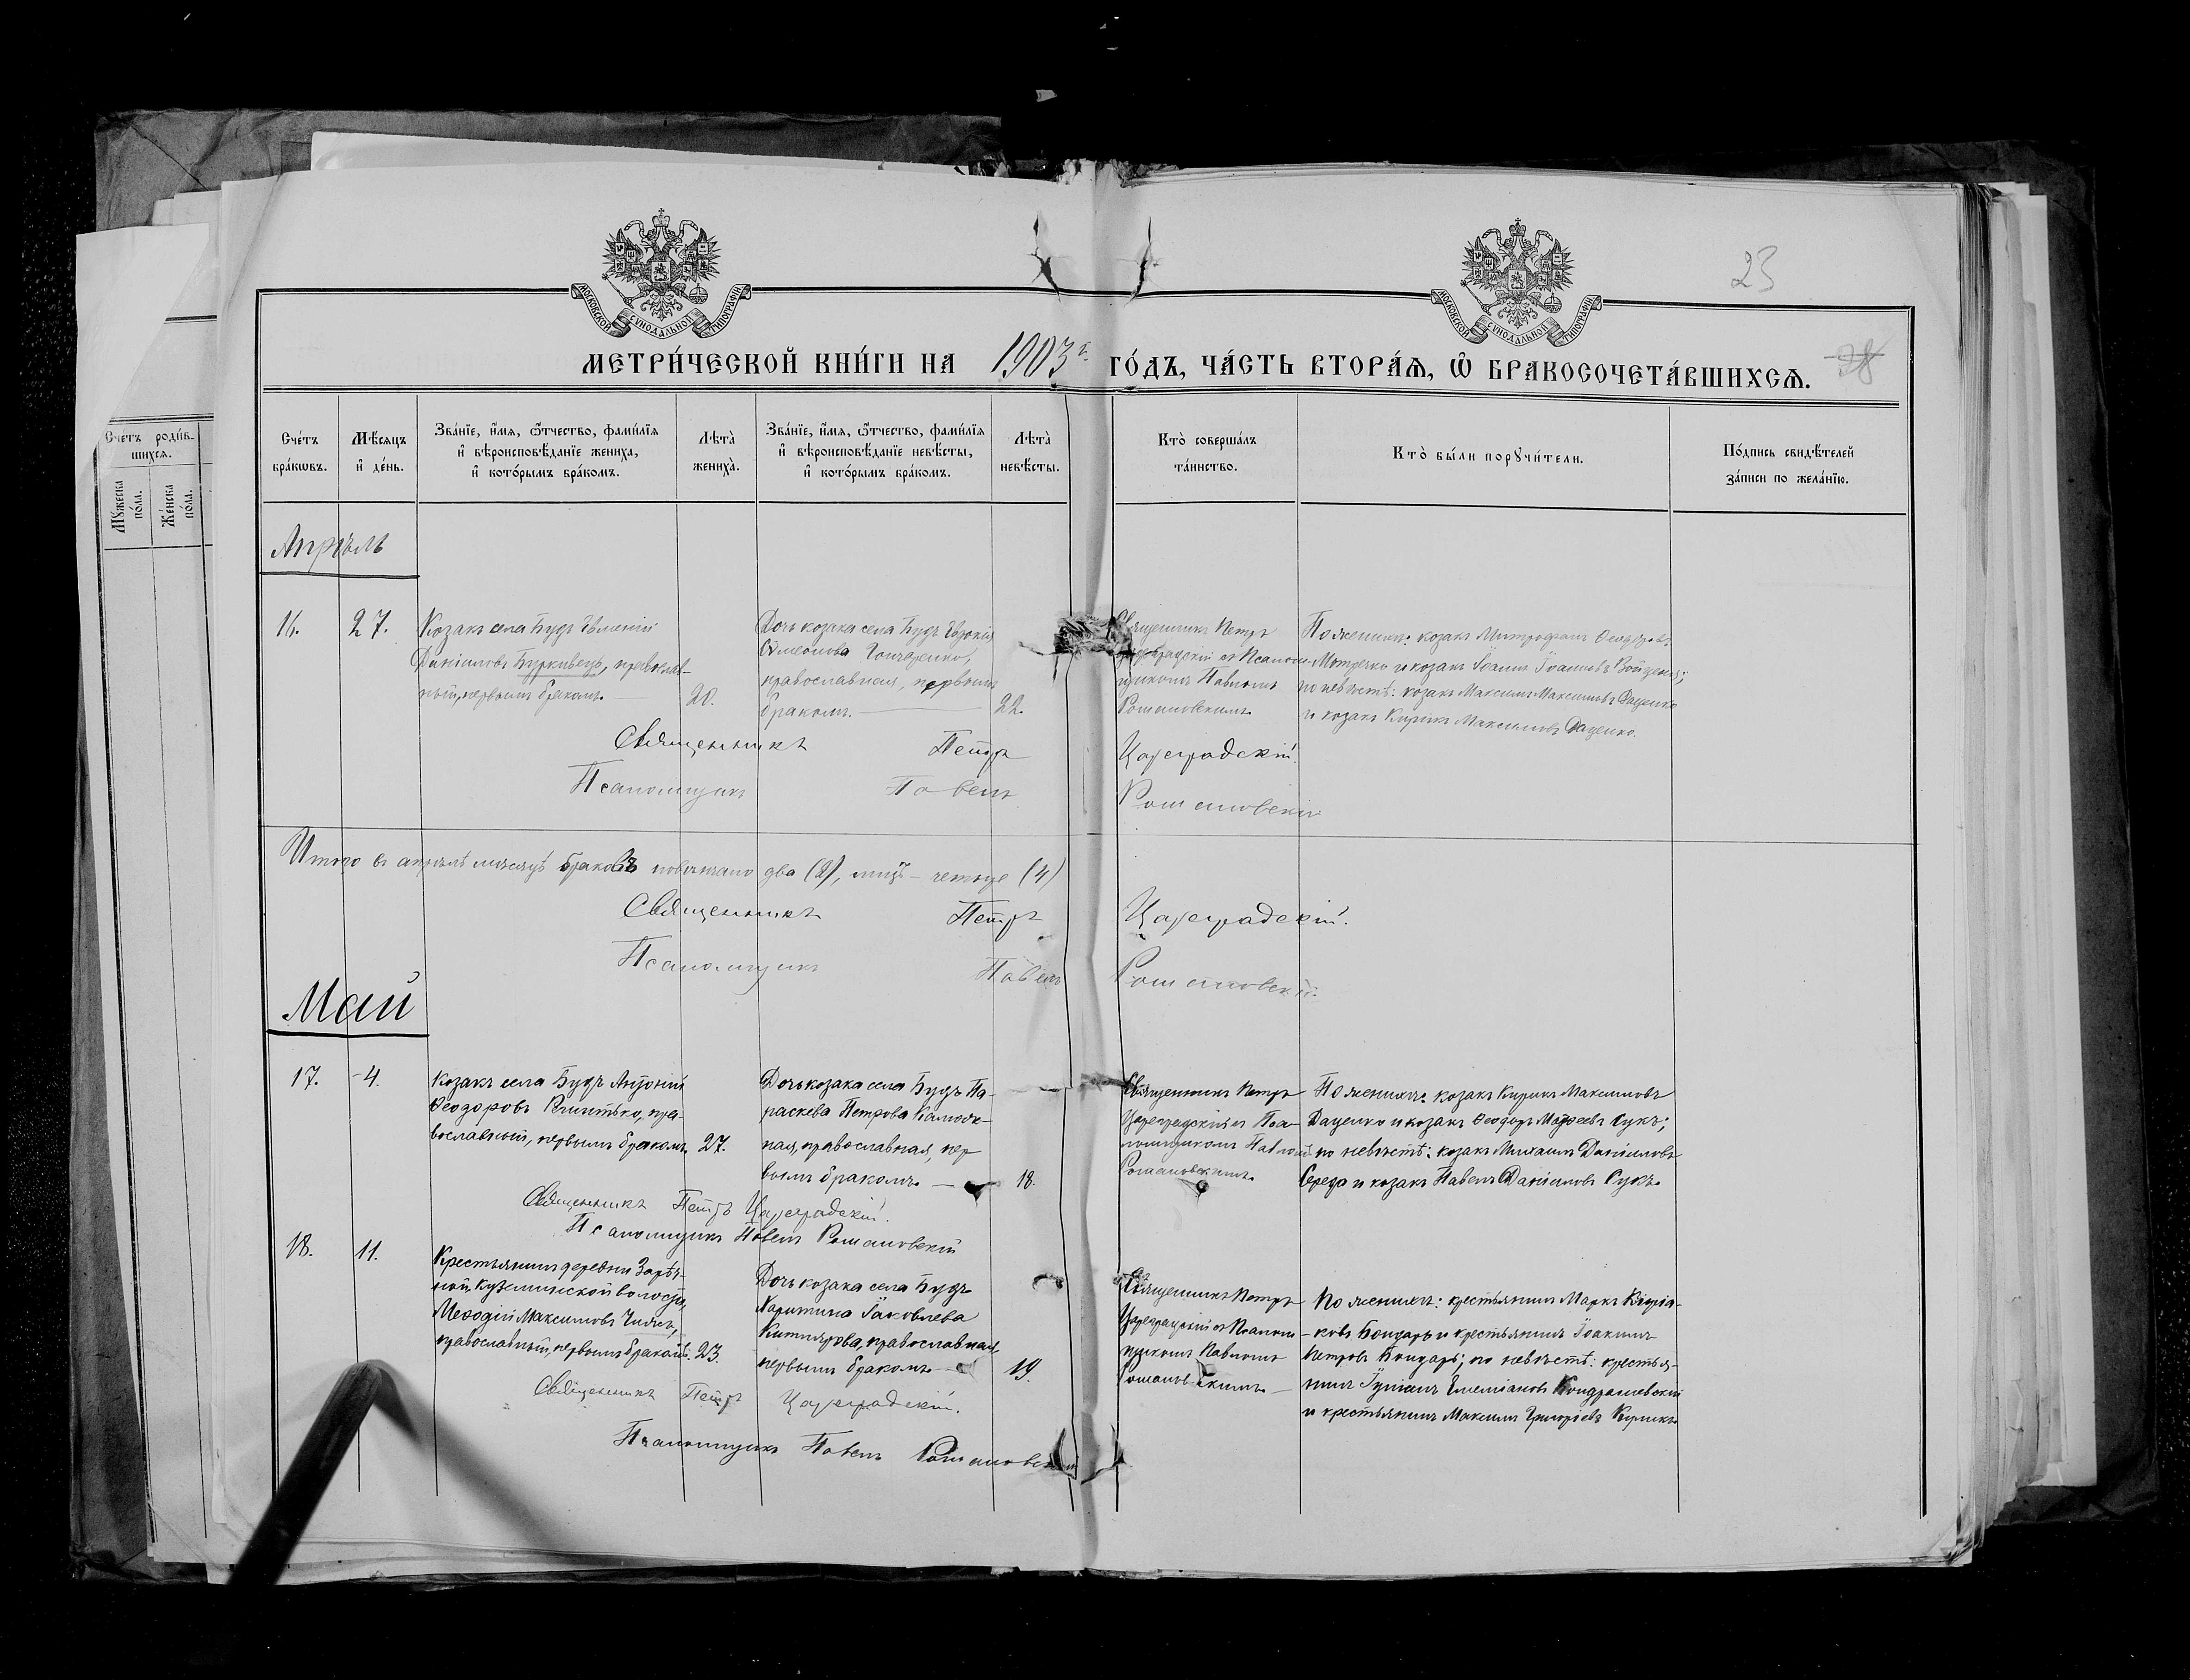 МОСКОВСКОЙ СѴНОДАЛЬНОЙ ТИПОГРАФІИ
МОСКОВСКОЙ СѴНОДАЛЬНОЙ ТИПОГРАФІИ
23
МЕТРИ́ЧЕСКОЙ КНИ́ГИ НА 1903 г. ГО́ДЪ, ЧА́СТЬ ВТОРА́Ѧ, Ѽ БРАКОСОЧЕТА́ВШИХСѦ.
Сче́тъ роди́в-
шихсѧ.
Мꙋ́жеска по́ла.
Же́нска по́ла.
Сче́тъ бра́кωвъ.
Мѣ́сѧцъ и҆ де́нь.
Зва́нїе, и҆́мѧ, ѻ҆́тчество, фами́лїѧ
и҆ вѣроисповѣ́данїе жениха̀,
и҆ кото́рымъ бра́комъ.
Лѣ́та̀ жениха̀.
Зва́нїе, и҆́мѧ, ѻ҆́тчество, фами́лїѧ
и҆ вѣроисповѣ́данїе невѣ́сты,
и҆ кото́рымъ бра́комъ.
Лѣ́та̀ невѣ́сты.
Кто̀ соверша́лъ
та́инство.
Кто̀ бы́ли порꙋчи́тели.
По́дпись свидѣ́телей
за́писи по жела́нїю.
Апрѣль
16.
27.
Козакъ села Будъ Евменій
Даніиловъ Бурковецъ, православ-
ный, первымъ бракомъ.
20.
Дочь козака села Будъ Евдокія
Симеонова Гончаренко,
православная, первымъ
бракомъ.
22.
Священникъ Петръ
Цареградскій съ Псалом-
щикомъ Павломъ
Романовскимъ.
По женихѣ: козакъ Митрофанъ Феодоровъ
Мотречко и козакъ Іоаннъ Іоанновъ
по невѣстѣ: козакъ Максимъ Максимовъ Даценко
и козакъ Кирикъ Максимовъ Даценко.
Священникъ Петръ Цареградскій.
Псаломщикъ Павелъ Романовскій
Итого въ апрѣлѣ мѣсяцѣ браковъ повѣнчано два (2), лицъ – четыре (4)
Священникъ Петръ Цареградскій.
Псаломщикъ Павелъ Романовскій.
Май
17.
4.
Козакъ села Будъ Антоній
Феодоровъ пра-
вославный, первымъ бракомъ.
27.
Дочь козака села Будъ Па-
раскева Петрова
ная, православная, пер
вымъ бракомъ.
18.
Священникъ Петръ
Цареградскій съ Пса-
ломщикомъ Павломъ
Романовскимъ.
По женихѣ: козакъ Кирикъ Максимовъ
Даценко и козакъ Феодоръ Сукъ;
по невѣстѣ: козакъ Михаилъ Даніиловъ
Середа и козакъ Павелъ Даніиловъ Сукъ.
Священникъ Петръ Цареградскій.
Псаломщикъ Павелъ Романовскій
18.
11.
Крестьянинъ деревни Зарѣч-
ной, волости,
Меѳодій Максимовъ
православный, первымъ бракомъ.
23.
Дочь козака села Будъ
Харитина Іаковлева
православная,
первымъ бракомъ.
19.
Священникъ Петръ
Цареградскій съ Псалом-
щикомъ Павломъ
Романовскимъ.
По женихѣ: крестьянинъ Маркъ Кипріа-
новъ Бондарь и крестьянинъ Іоакимъ
Петровъ Бондарь; по невѣстѣ: крестья-
нинъ Емеліановъ Кондрашевскій
и крестьянинъ Максимъ Григоріевъ
Священникъ Петръ Цареградскій.
Псаломщикъ Павелъ Романовскій